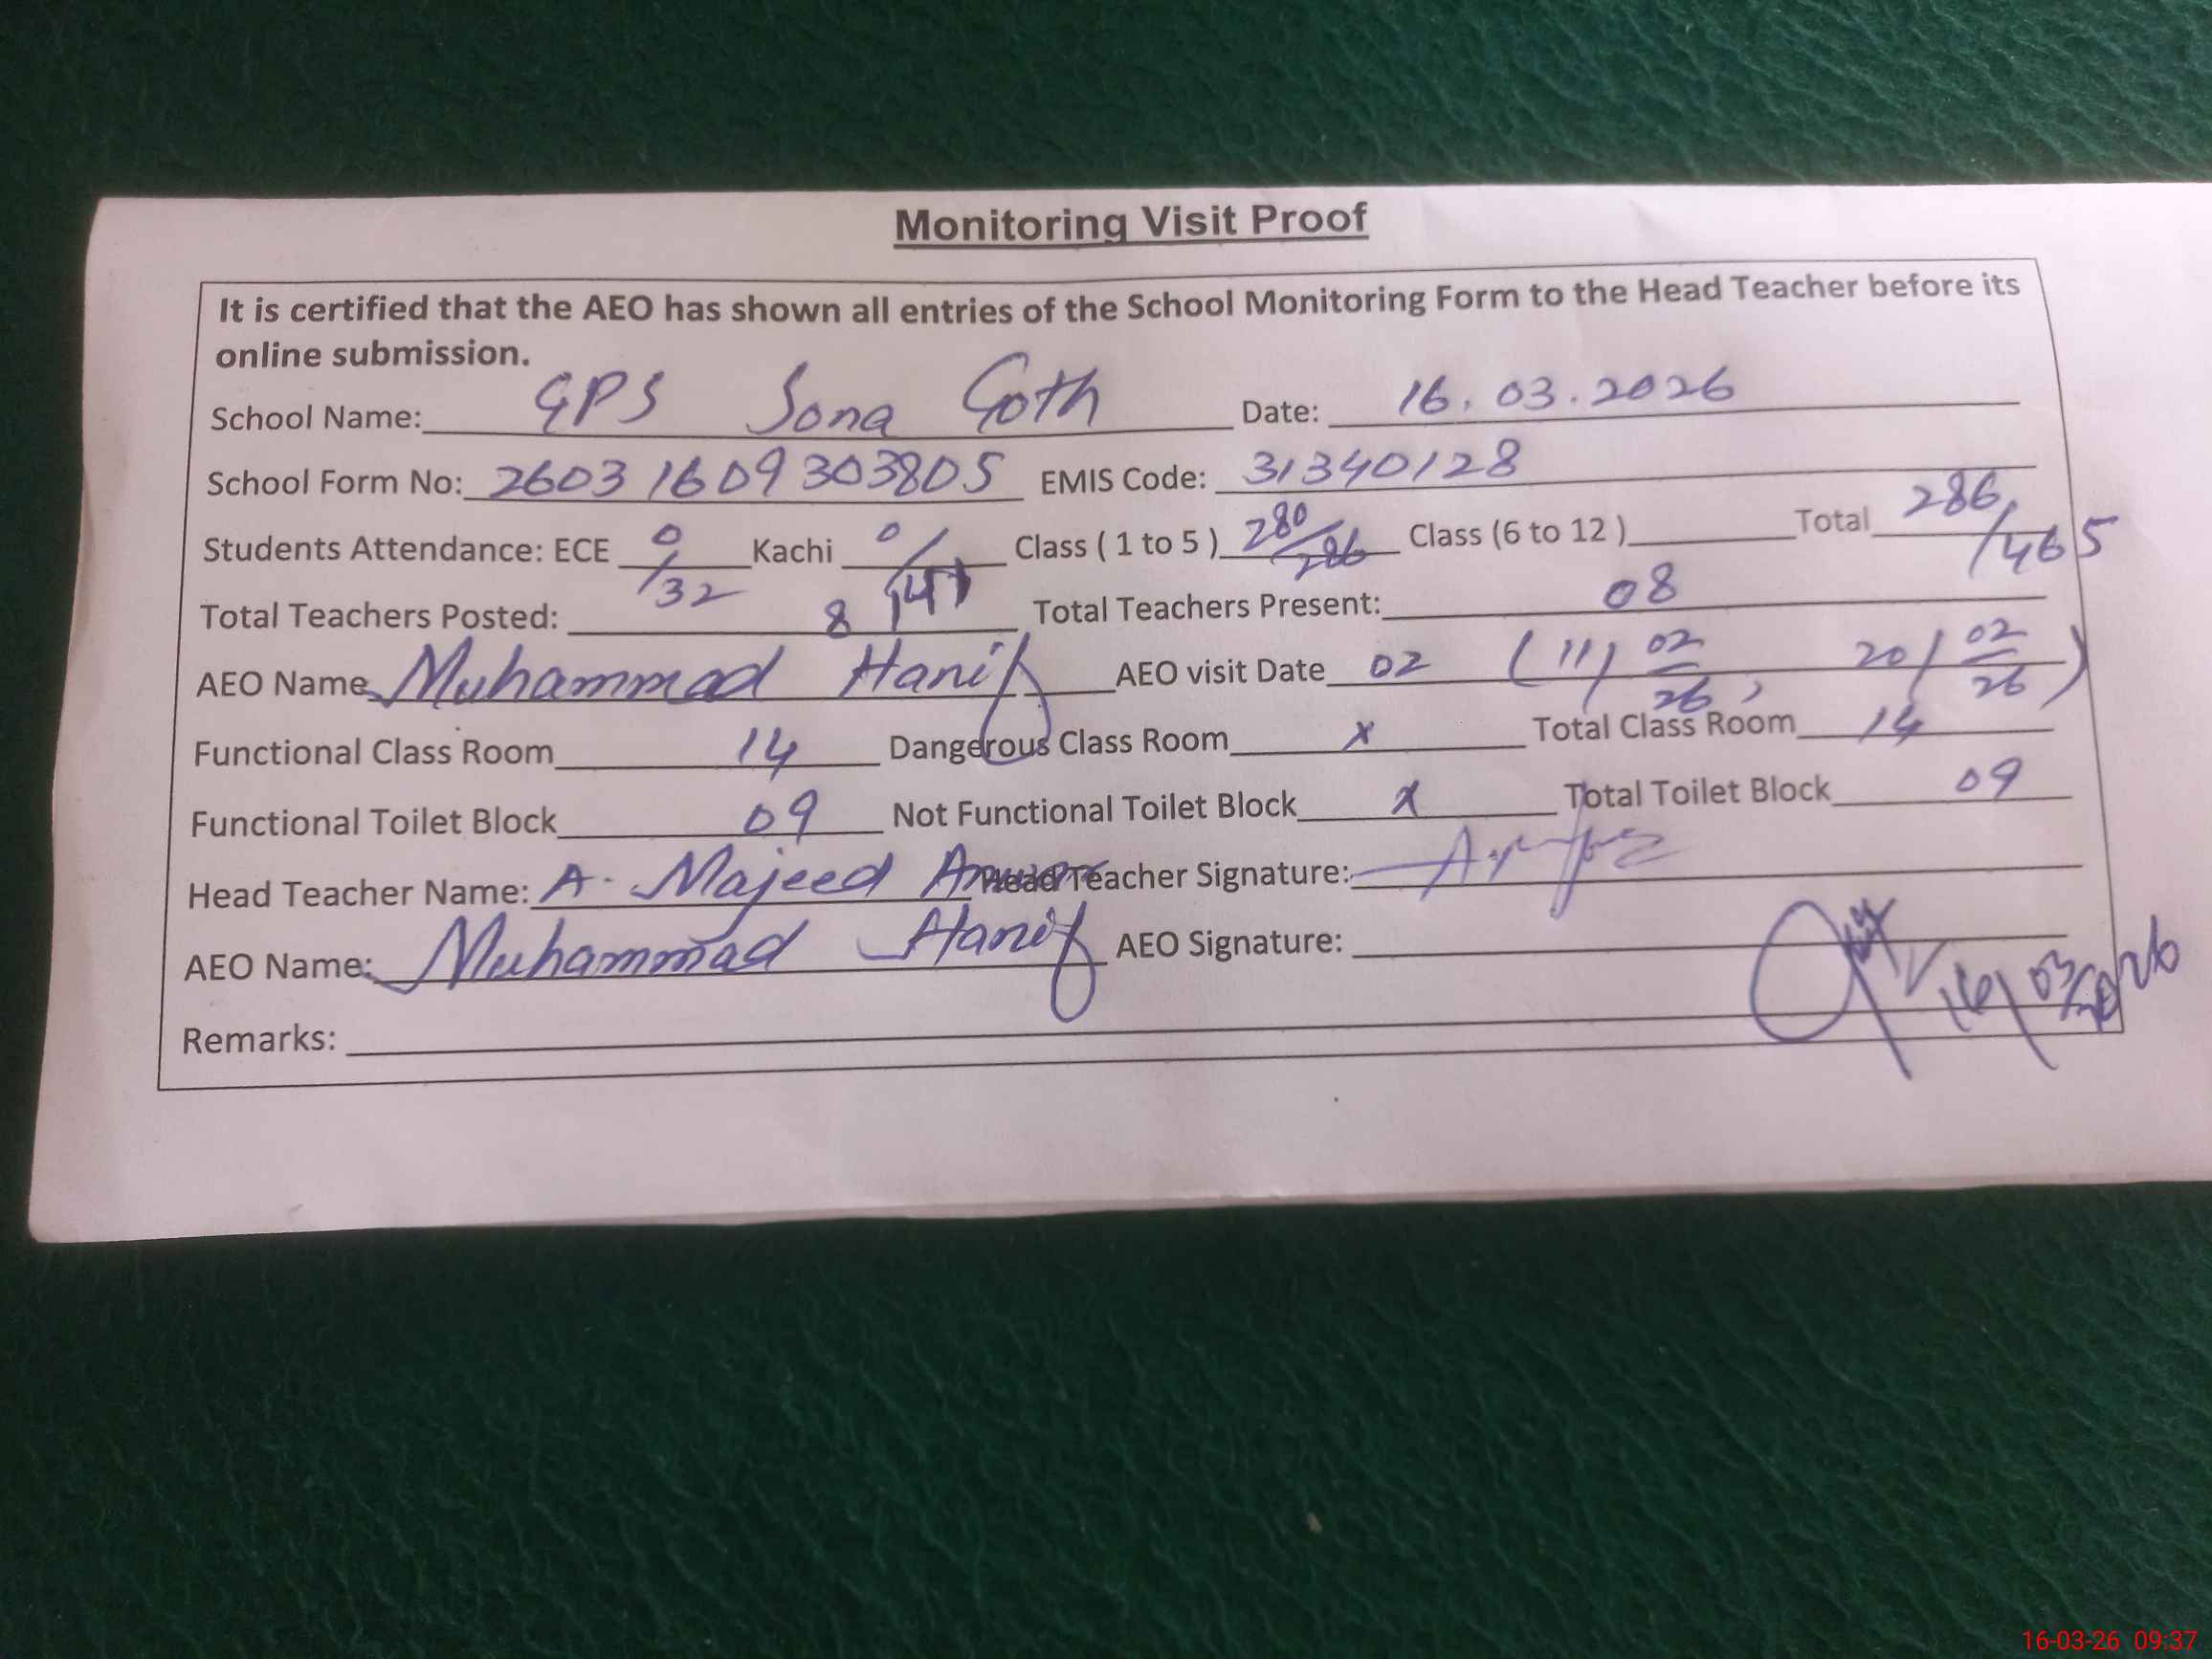 Monitoring Visit Proof
It is certified that the AEO has shown all entries of the School Monitoring Form to the Head Teacher before its
online submission.
School Name: GPS Sona Goth Date: 16.03.2026
School Form No: 26031609303805 EMIS Code: 31340128
Students Attendance: ECE 0/32 Kachi 0/147 Class ( 1 to 5 ) 280/286 Class (6 to 12 ) Total 286/465
Total Teachers Posted: 8 Total Teachers Present: 08
AEO Name Muhammad Hanif AEO visit Date 02 (11/02/26, 20/02/26)
Functional Class Room 14 Dangerous Class Room x Total Class Room 14
Functional Toilet Block 09 Not Functional Toilet Block x Total Toilet Block 09
Head Teacher Name: A. Majeed Head Teacher Signature:
AEO Name: Muhammad Hanif AEO Signature: 16/03/2026
Remarks:
16-03-26 09:37